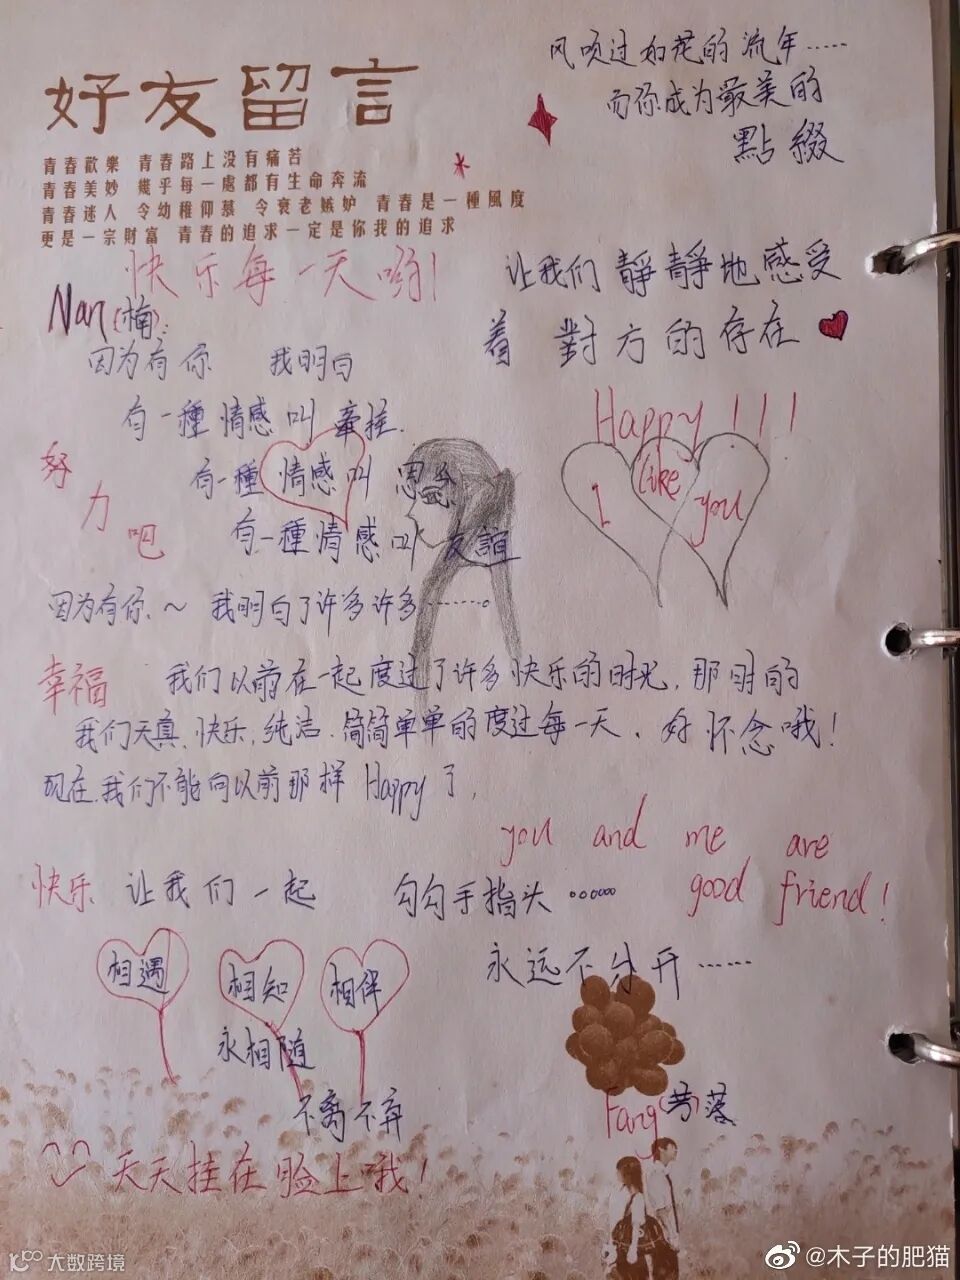 好友留言
青春歡樂 青春路上没有痛苦
青春美妙 幾乎每一處都有生命奔流
青春迷人 令幼稚仰慕 令衰老嫉妒 青春是一種風度
更是一宗財富 青春的追求一定是你我的追求
风颂过如花的流年……
而你成为最美的
點綴
快乐每一天哟!
让我们靜靜地感受
着對方的存在
Nan(楠):
因为有你 我明白
有一種情感叫牽挂.
有一種情感叫思念
有一種情感叫友誼
努力吧
Happy!!!
I like you
因为有你~我明白了许多许多……。
幸福 我们以前在一起度过了许多快乐的时光,那时的
我们天真、快乐,纯洁.简简单单的度过每一天、好怀念哦!
现在,我们不能向以前那样Happy了,
you and me are
good friend!
快乐 让我们一起 勾勾手指头……
永远不分开……
相遇 相知 相伴
永相随
不离不弃
Fang(芳)落
天天挂在脸上哦!
大数跨境
@木子的肥猫